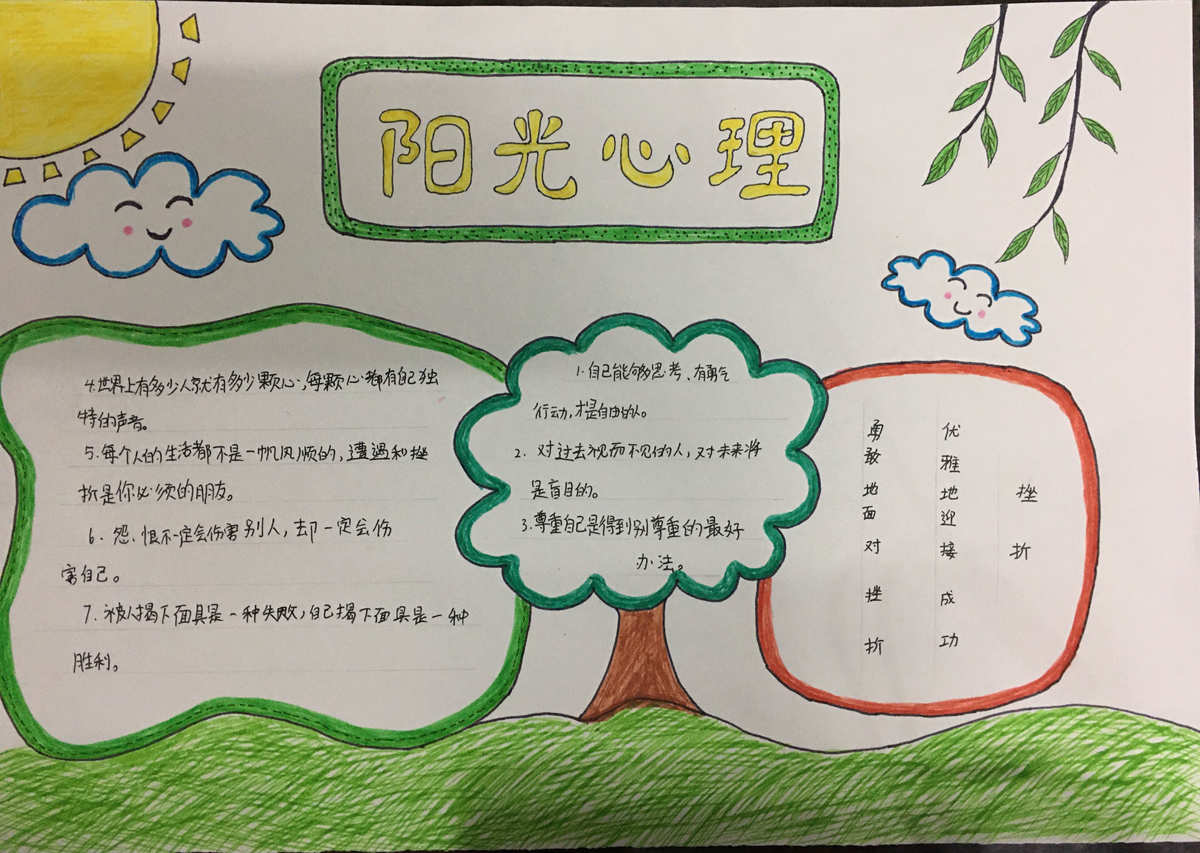 阳光心理
1.自己能够思考、有勇气
行动,才是自由的人。
2.对过去视而不见的人,对未来将
是盲目的。
3.尊重自己是得到别尊重的最好
办法。
4.世界上有多少人就有多少颗心,每颗心都有自己独
特的声音。
5.每个人的生活都不是一帆风顺的,遭遇和挫
折是你必须的朋友。
6.怨、恨不一定会伤害别人,却一定会伤
害自己。
7.被人揭下面具是一种失败,自己揭下面具是一种
胜利。
挫折
优雅地迎接成功
勇敢地面对挫折